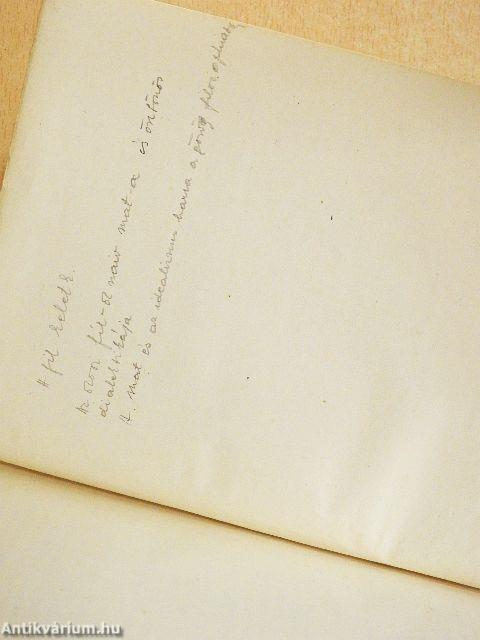 A fil kelet k.
Az ókori fil-ok naiv mat-a és ösztönös
dialektikája
A mat és az idealizmus harca a görög filozofiában
Antikvárium.hu